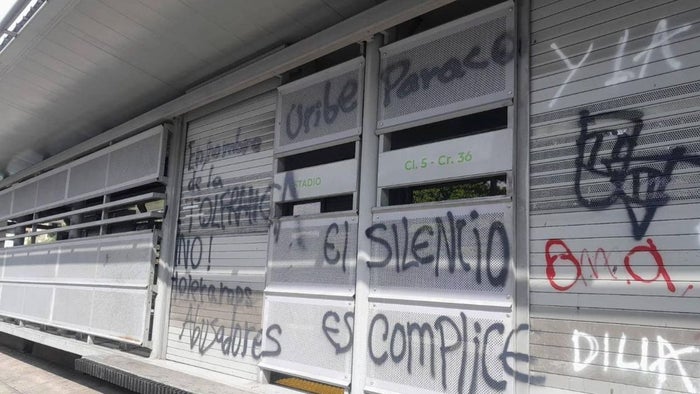 En nombre
de la
TOLERANCIA
NO!
toleramos
Abusadores
Uribe Paraco
ESTADIO
Cl. 5 - Cr. 36
El SILENCIO
ES Complice
y LA
Ama
DILIA